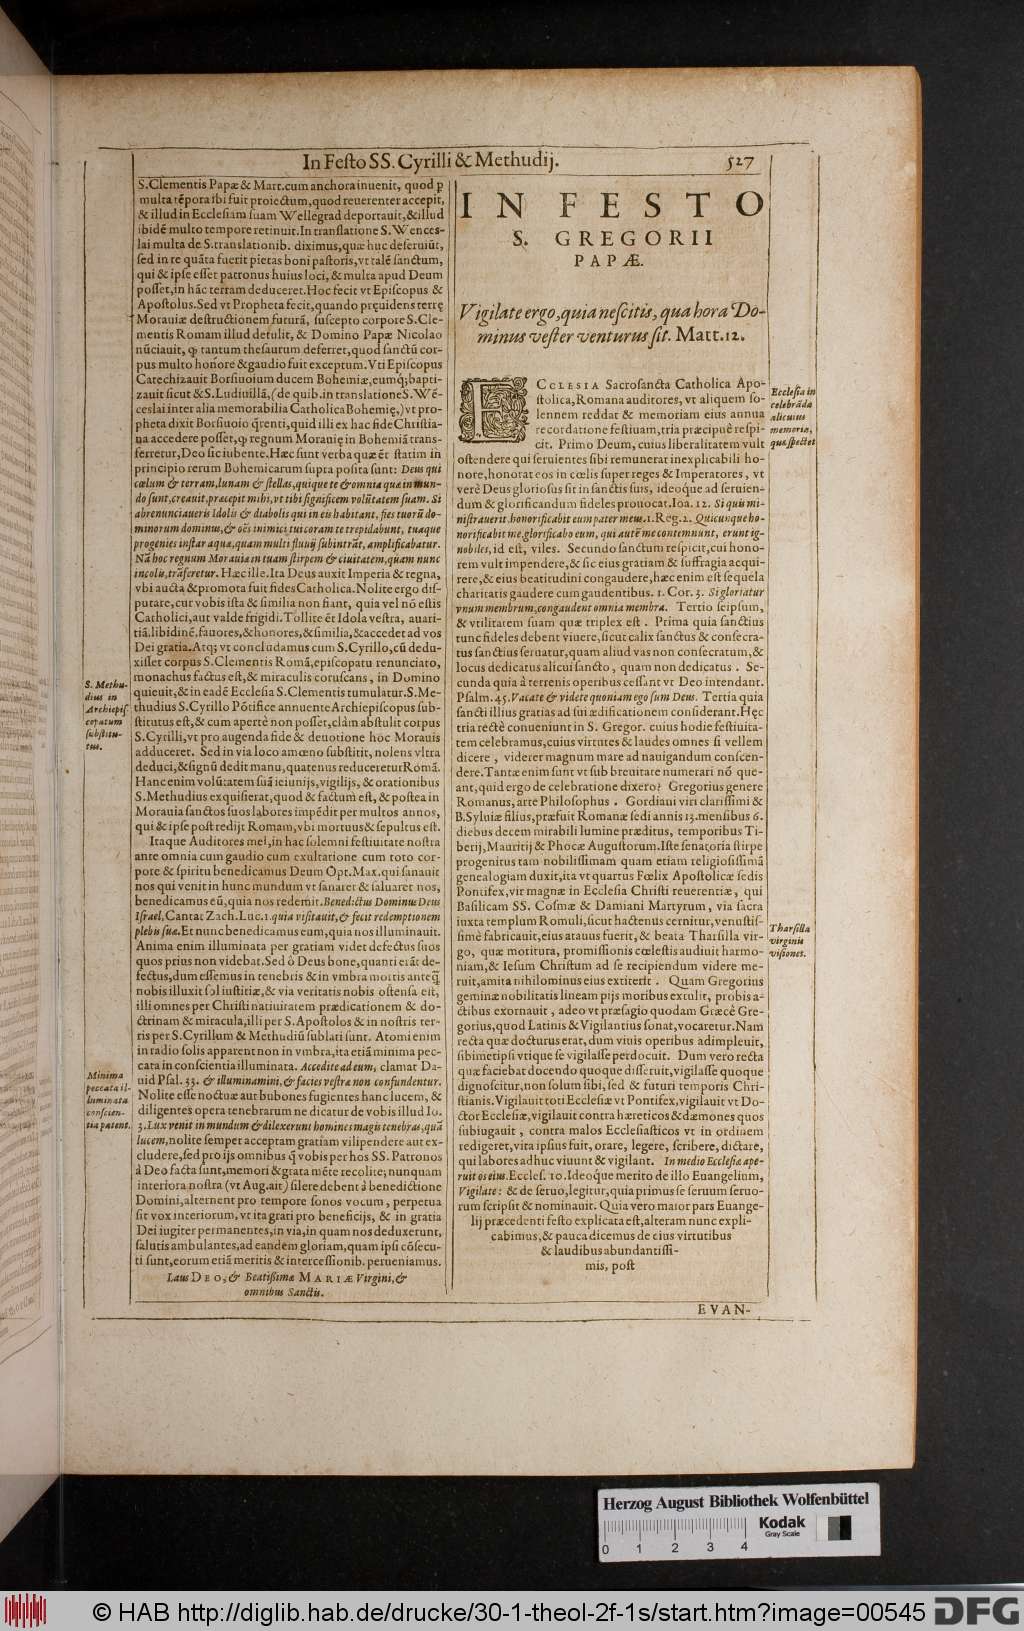 In Festo SS. Cyrilli & Methudij. 527
S. Clementis Papæ & Mart. cum anchora inuenit, quod p
multa tẽpora ibi fuit proiectum, quod reuerenter accepit,
& illud in Ecclesiam suam Wellegrad deportauit, & illud
ibidẽ multo tempore retinuit. In translatione S. Wences-
lai multa de S. translationib. diximus, quæ huc deseruiũt,
sed in re quãta fuerit pietas boni pastoris, vt talẽ sanctum,
qui & ipse esset patronus huius loci, & multa apud Deum
posset, in hãc terram deduceret. Hoc fecit vt Episcopus &
Apostolus. Sed vt Propheta fecit, quando pręuidens terrę
Morauiæ destructionem futurã, suscepto corpore S. Cle-
mentis Romam illud detulit, & Domino Papæ Nicolao
nũciauit, ꝙ tantum thesaurum deferret, quod sanctũ cor-
pus multo honore & gaudio fuit exceptum. Vti Episcopus
Catechizauit Borsiuoium ducem Bohemiæ, eumq́; bapti-
zauit sicut & S. Ludmillã, (de quib. in translatione S. Wẽ-
ceslai inter alia memorabilia Catholica Bohemię,) vt pro-
pheta dixit Borsiuoio q̃renti, quid illi ex hac fide Christia-
na accedere posset, ꝙ regnum Morauię in Bohemiã trans-
ferretur, Deo sic iubente. Hæc sunt verba quæ ẽt statim in
principio rerum Bohemicarum supra posita sunt: Deus qui
cœlum & terram, lunam & stellas, quique te & omnia quæ in mun-
do sunt, creauit, præcepit mihi, vt tibi significem volũtatem suam. Si
abrenunciaueris Idolis & diabolis qui in eis habitant, fies tuorũ do-
minorum dominus, & oẽs inimici tui coram te trepidabunt, tuaque
progenies instar aquæ, quam multi fluuij subintrãt, amplificabatur.
Nã hoc regnum Morauia in tuam stirpem & ciuitatem, quam nunc
incolis, trãsferetur. Hæc ille. Ita Deus auxit Imperia & regna,
vbi aucta & promota fuit fides Catholica. Nolite ergo dis-
putare, cur vobis ista & similia non fiant, quia vel nõ estis
Catholici, aut valde frigidi. Tollite ẽt Idola vestra, auari-
tiã, libidinẽ, fauores, & honores, & similia, & accedet ad vos
Dei gratia. Atq; vt concludamus cum S. Cyrillo, cũ dedu-
xisset corpus S. Clementis Romã, episcopatu renunciato,
monachus factus est, & miraculis coruscans, in Domino
quieuit, & in eadẽ Ecclesia S. Clementis tumulatur. S. Me-
thudius S. Cyrillo Põtifice annuente Archiepiscopus sub-
stitutus est, & cum apertè non posset, clàm abstulit corpus
S. Cyrilli, vt pro augenda fide & deuotione hoc Morauis
adduceret. Sed in via loco amœno substitit, nolens vltra
deduci, & signũ dedit manu, quatenus reduceretur Romã.
Hanc enim volũtatem suã ieiunijs, vigilijs, & orationibus
S. Methudius exquisierat, quod & factum est, & postea in
Morauia sanctos suos labores impẽdit per multos annos,
qui & ipse post redijt Romam, vbi mortuus & sepultus est.
Itaque Auditores mei, in hac solemni festiuitate nostra
ante omnia cum gaudio cum exultatione cum toto cor-
pore & spiritu benedicamus Deum Opt. Max. qui sanauit
nos qui venit in hunc mundum vt sanaret & saluaret nos,
benedicamus eũ, quia nos redemit. Benedictus Dominus Deus
Israel, Cantat Zach. Luc. 1. quia visitauit, & fecit redemptionem
plebis suæ. Et nunc benedicamus eum, quia nos illuminauit.
Anima enim illuminata per gratiam videt defectus suos
quos prius non videbat. Sed ô Deus bone, quanti erãt de-
fectus, dum essemus in tenebris & in vmbra mortis anteq̃
nobis illuxit sol iustitiæ, & via veritatis nobis ostensa est,
illi omnes per Christi natiuitatem prædicationem & do-
ctrinam & miracula, illi per S. Apostolos & in nostris ter-
ris per S. Cyrillum & Methudiũ sublati sunt. Atomi enim
in radio solis apparent non in vmbra, ita etiã minima pec-
cata in conscientia illuminata. Accedite ad eum, clamat Da-
uid Psal. 33. & illuminamini, & facies vestræ non confundentur.
Nolite esse noctuæ aut bubones fugientes hanc lucem, &
diligentes opera tenebrarum ne dicatur de vobis illud Io.
3. Lux venit in mundum & dilexerunt homines magis tenebras, quã
lucem, nolite semper acceptam gratiam vilipendere aut ex-
cludere, sed pro ijs omnibus q̃ vobis per hos SS. Patronos
à Deo facta sunt, memori & grata mẽte recolite; nunquam
interiora nostra (vt Aug. ait) silere debent à benedictione
Domini, alternent pro tempore sonos vocum, perpetua
sit vox interiorum, vt ita grati pro beneficijs, & in gratia
Dei iugiter permanentes, in via, in quam nos deduxerunt,
salutis ambulantes, ad eandem gloriam, quam ipsi cõsecu-
ti sunt, eorum etiã meritis & intercessionib. perueniamus.
Laus DEO, & Beatissimæ MARIÆ Virgini, &
omnibus Sanctis.
S. Methu-
dius in
Archiepis
copatum
substitu-
tus.
Minima
peccata il-
luminata
conscien-
tia patent.
IN FESTO
S. GREGORII
PAPÆ.
Vigilate ergo, quia nescitis, qua hora Do-
minus vester venturus sit. Matt. 12.
ECCLESIA Sacrosancta Catholica Apo-
stolica, Romana auditores, vt aliquem so-
lennem reddat & memoriam eius annua
recordatione festiuam, tria præcipuè respi-
cit. Primo Deum, cuius liberalitatem vult
ostendere qui seruientes sibi remunerat inexplicabili ho-
nore, honorat eos in cœlis super reges & Imperatores, vt
verè Deus gloriosus sit in sanctis suis, ideoq́ue ad seruien-
dum & glorificandum fideles prouocat. Ioa. 12. Si quis mi-
nistrauerit, honorificabit eum pater meus. 1. Reg. 2. Quicunque ho-
norificabit me, glorificabo eum, qui autẽ me contemnunt, erunt ig-
nobiles, id est, viles. Secundo sanctum respicit, cui hono-
rem vult impendere, & sic eius gratiam & suffragia acqui-
rere, & eius beatitudini congaudere, hæc enim est sequela
charitatis gaudere cum gaudentibus. 1. Cor. 3. Si gloriatur
vnum membrum, congaudent omnia membra. Tertio seipsum,
& vtilitatem suam quæ triplex est. Prima quia sanctius
tunc fideles debent viuere, sicut calix sanctus & consecra-
tus sanctius seruatur, quam aliud vas non consecratum, &
locus dedicatus alicui sancto, quam non dedicatus. Se-
cunda quia à terrenis operibus cessant vt Deo intendant.
Psalm. 45. Vacate & videte quoniam ego sum Deus. Tertia quia
sancti illius gratias ad sui ædificationem considerant. Hęc
tria rectè conueniunt in S. Gregor. cuius hodie festiuita-
tem celebramus, cuius virtutes & laudes omnes si vellem
dicere, viderer magnum mare ad nauigandum conscen-
dere. Tantæ enim sunt vt sub breuitate numerari nõ que-
ant, quid ergo de celebratione dixero? Gregorius genere
Romanus, arte Philosophus. Gordiani viri clarissimi &
B. Syluiæ filius, præfuit Romanæ sedi annis 13. mensibus 6.
diebus decem mirabili lumine præditus, temporibus Ti-
berij, Mauritij & Phocæ Augustorum. Iste senatoria stirpe
progenitus tam nobilissimam quam etiam religiosissimã
genealogiam duxit, ita vt quartus Fœlix Apostolicæ sedis
Pontifex, vir magnæ in Ecclesia Christi reuerentiæ, qui
Basilicam SS. Cosmæ & Damiani Martyrum, via sacra
iuxta templum Romuli, sicut hactenus cernitur, venustis-
simè fabricauit, eius atauus fuerit, & beata Tharsilla vir-
go, quæ moritura, promissionis cœlestis audiuit harmo-
niam, & Iesum Christum ad se recipiendum videre me-
ruit, amita nihilominus eius extiterit. Quam Gregorius
geminæ nobilitatis lineam pijs moribus extulit, probis a-
ctibus exornauit, adeo vt præsagio quodam Græcè Gre-
gorius, quod Latinis & Vigilantius sonat, vocaretur. Nam
recta quæ docturus erat, dum viuis operibus adimpleuit,
sibimetipsi vtique se vigilasse perdocuit. Dum vero recta
quæ faciebat docendo quoque disseruit, vigilasse quoque
dignoscitur, non solum sibi, sed & futuri temporis Chri-
stianis. Vigilauit toti Ecclesiæ vt Pontifex, vigilauit vt Do-
ctor Ecclesiæ, vigilauit contra hæreticos & dæmones quos
subiugauit, contra malos Ecclesiasticos vt in ordinem
redigeret, vita ipsius fuit, orare, legere, scribere, dictare,
qui labores adhuc viuunt & vigilant. In medio Ecclesiæ ape-
ruit os eius. Eccles. 10. Ideoq́ue merito de illo Euangelium,
Vigilate: & de seruo, legitur, quia primus se seruum seruo-
rum scripsit & nominauit. Quia vero maior pars Euange-
lij præcedenti festo explicata est, alteram nunc expli-
cabimus, & pauca dicemus de eius virtutibus
& laudibus abundantissi-
mis, post
Ecclesia in
celebrãda
alicuius
memoria,
quæ spectet
Tharsilla
virginis
visiones.
EVAN-
Herzog August Bibliothek Wolfenbüttel
Kodak
Gray Scale
0 1 2 3 4
© HAB http://diglib.hab.de/drucke/30-1-theol-2f-1s/start.htm?image=00545 DFG